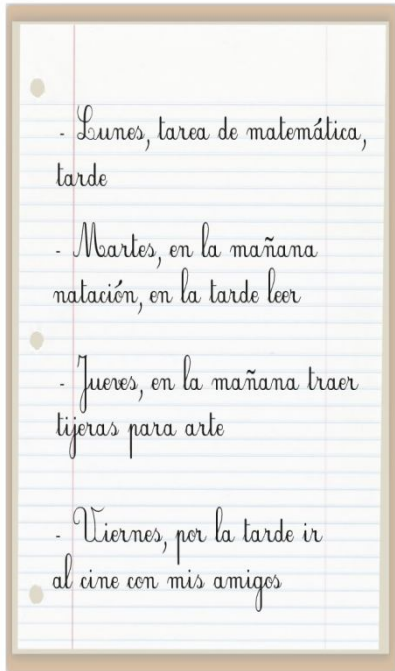 - Lunes, tarea de matemática,
tarde
- Martes, en la mañana
natación, en la tarde leer
- Jueves, en la mañana traer
tijeras para arte
- Viernes, por la tarde ir
al cine con mis amigos